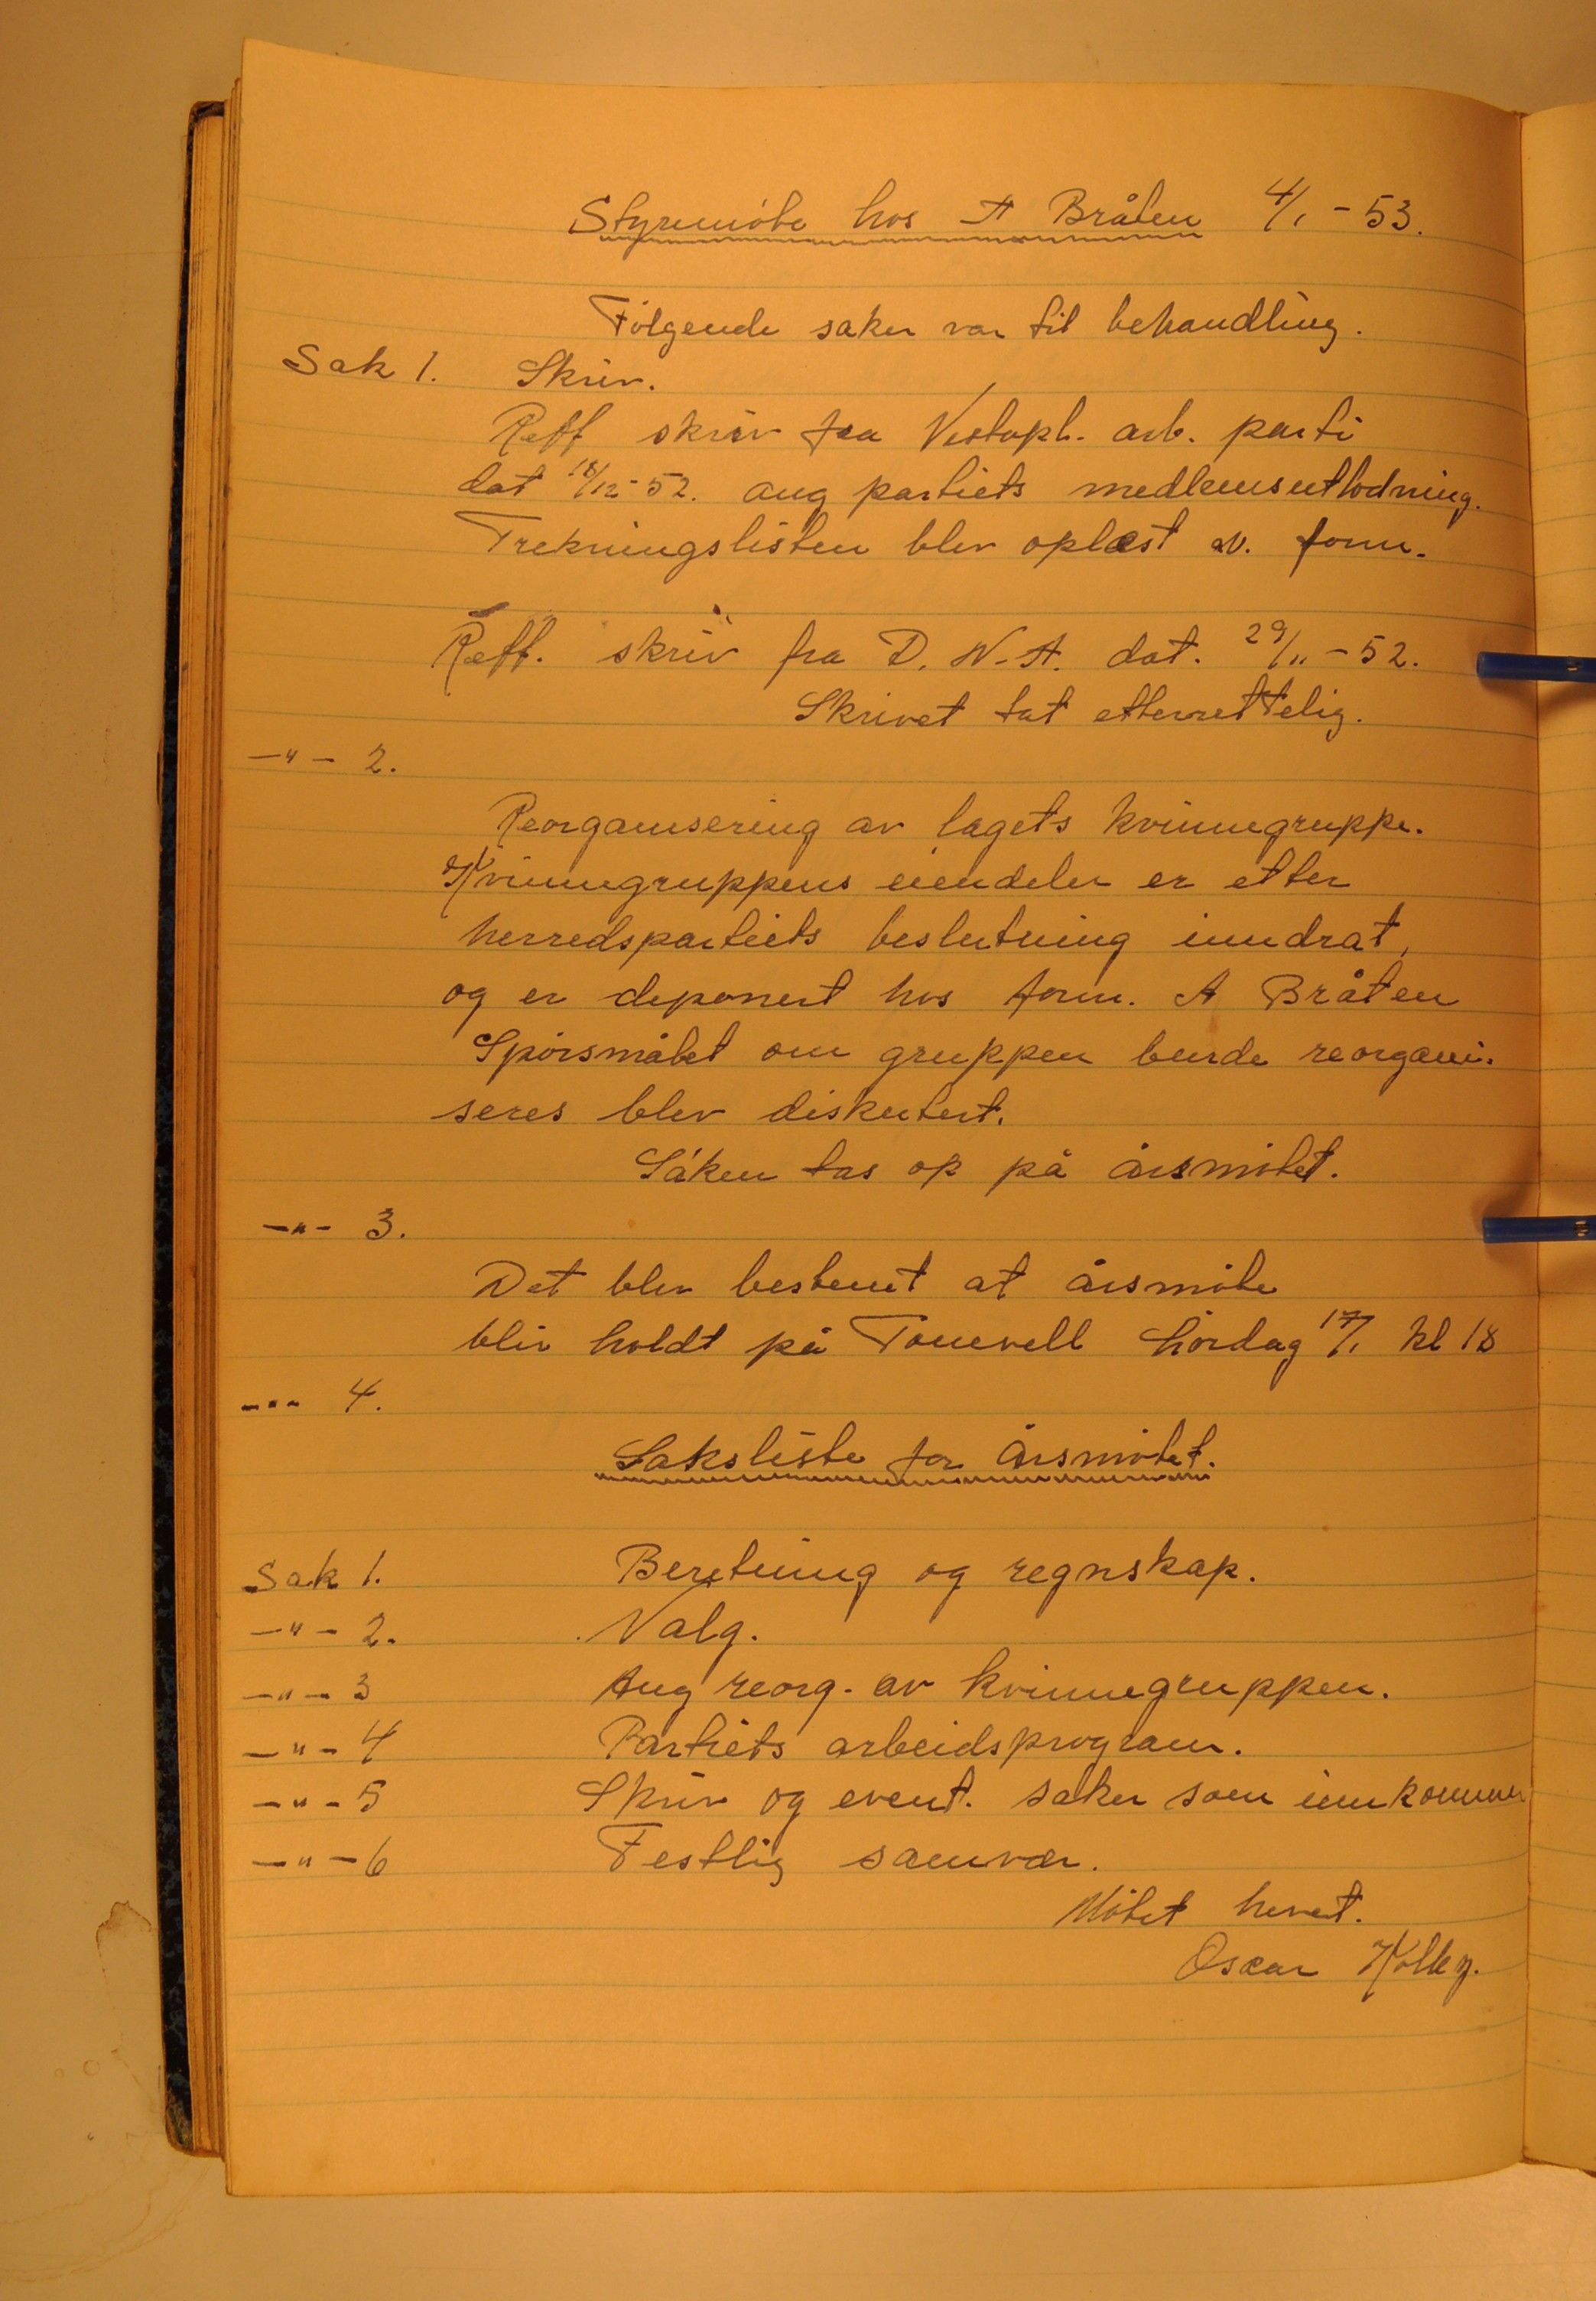 Styremöte hos A Bråten 4/1-53.
Følgende saker var til behandling.
Sak 1. Skriv.
Reff skriv fra Vestopl. arb. parti
dat 18/12-52. ang partiets medlemsutlodning.
Trekningslisten blev oplæst av. form.
Reff. skriv fra D.N.A. dat. 29/11-52.
Skrivet tat etterrettelig.
-"- 2.
Reorganisering av lagets kvinnegruppe.
Kvinnegruppens eiendeler er etter
herredspartiets beslutning inndrat,
og er deponert hos form. A Bråten
Spörsmålet om gruppen burde reorgani-
seres blev diskutert.
Saken tas op på årsmötet.
-"- 3.
Det blev bestemt at årsmöte
blir holdt på Tomvell Lördag 17/1 kl 18
-"- 4.
Saksliste for Årsmötet.
Sak 1. Beretning og regnskap.
-"- 2. Valg.
-"- 3 Ang reorg. av kvinnegruppen.
-"- 4 Partiets arbeidsprogram.
-"- 5 Skriv og event. saker som innkommer
-"- 6 Festlig samvær.
Mötet hevet.
Oscar Kolby.